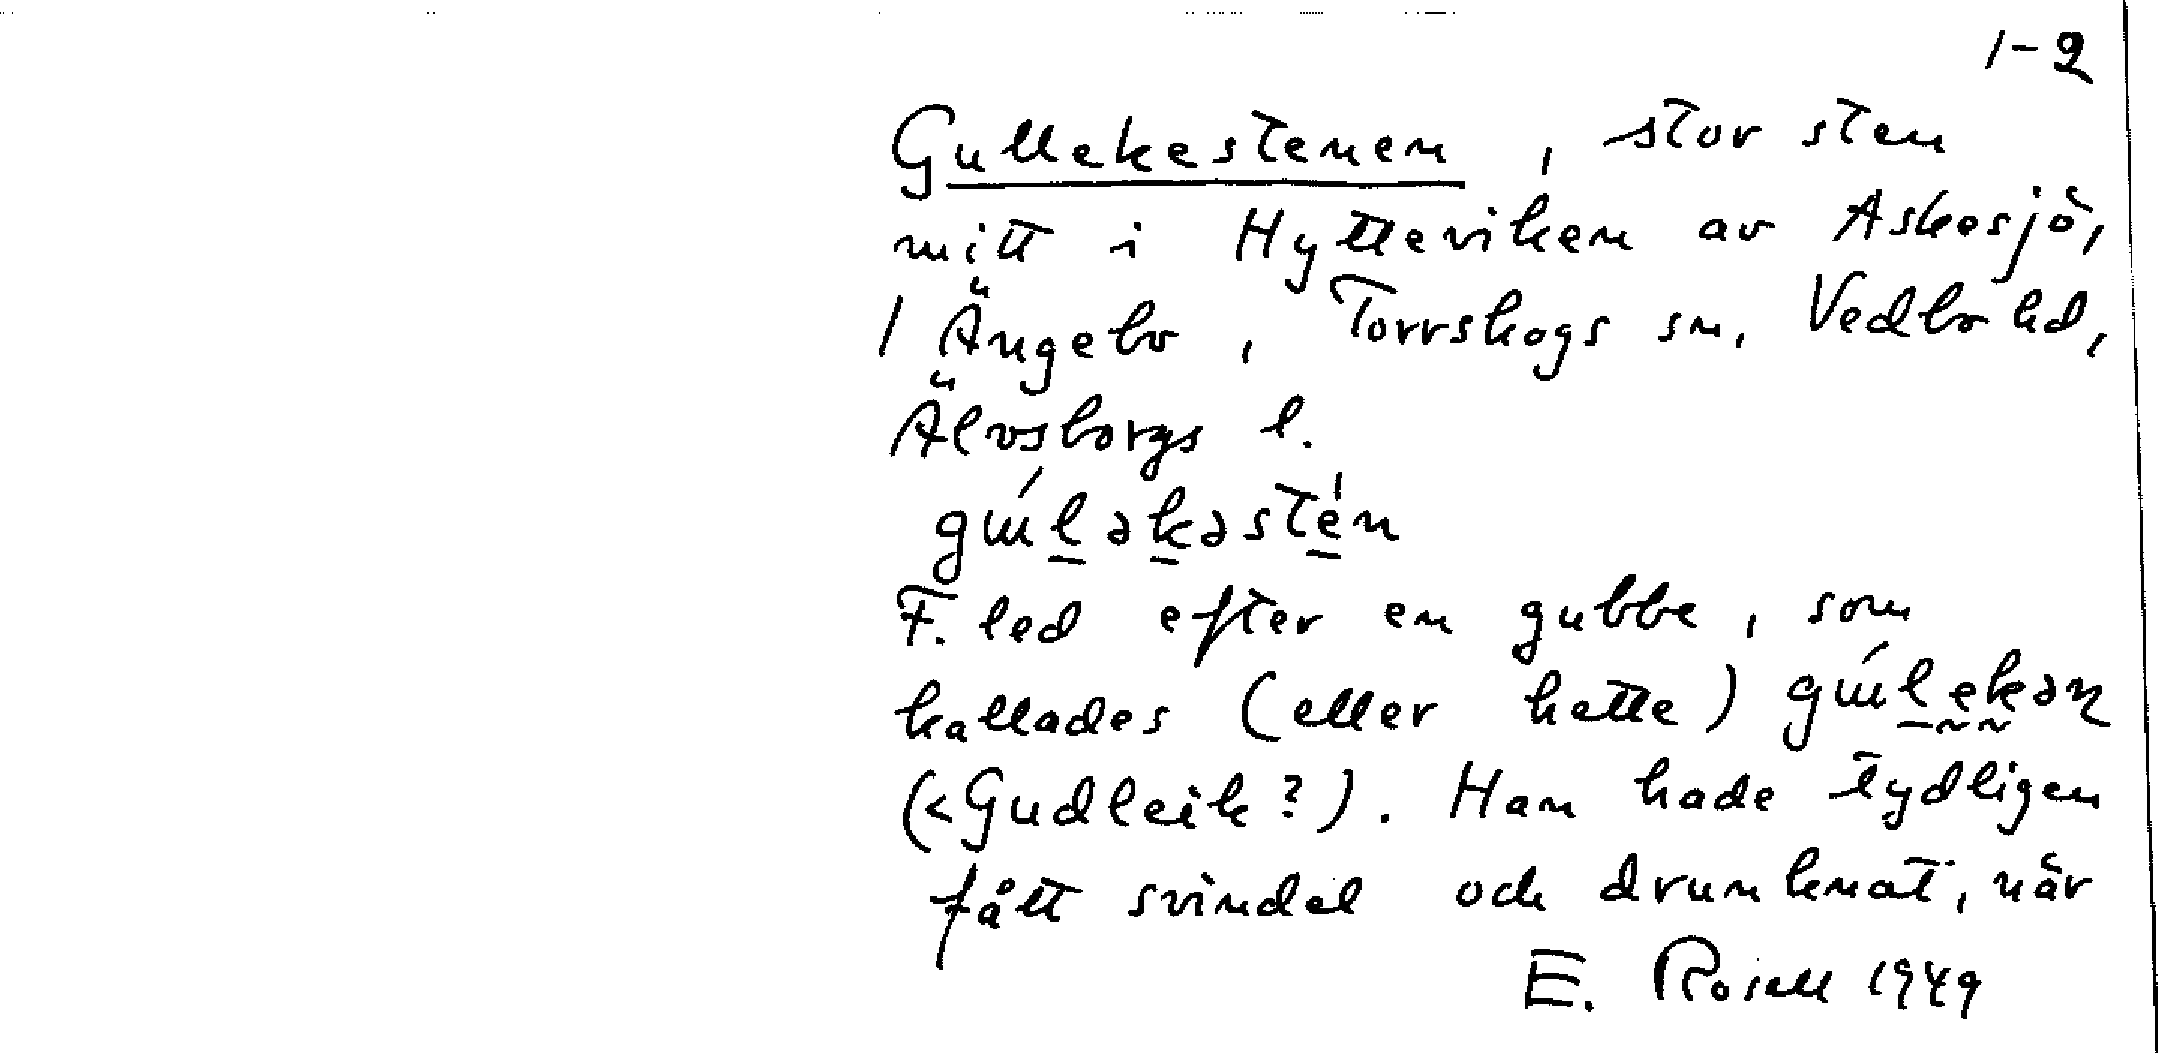 1-2
Gullekestenen, stor sten
mitt i Hytteviken av Askesjö,
/ Ängebo, Torrskogs sn, Vedbo hd,
Älvsborgs l.
F. led efter en gubbe, som
kallades (eller hette)
(< Gudleik?). Han hade tydligen
fått svindel och drunknat, när
E. Rosell 1949